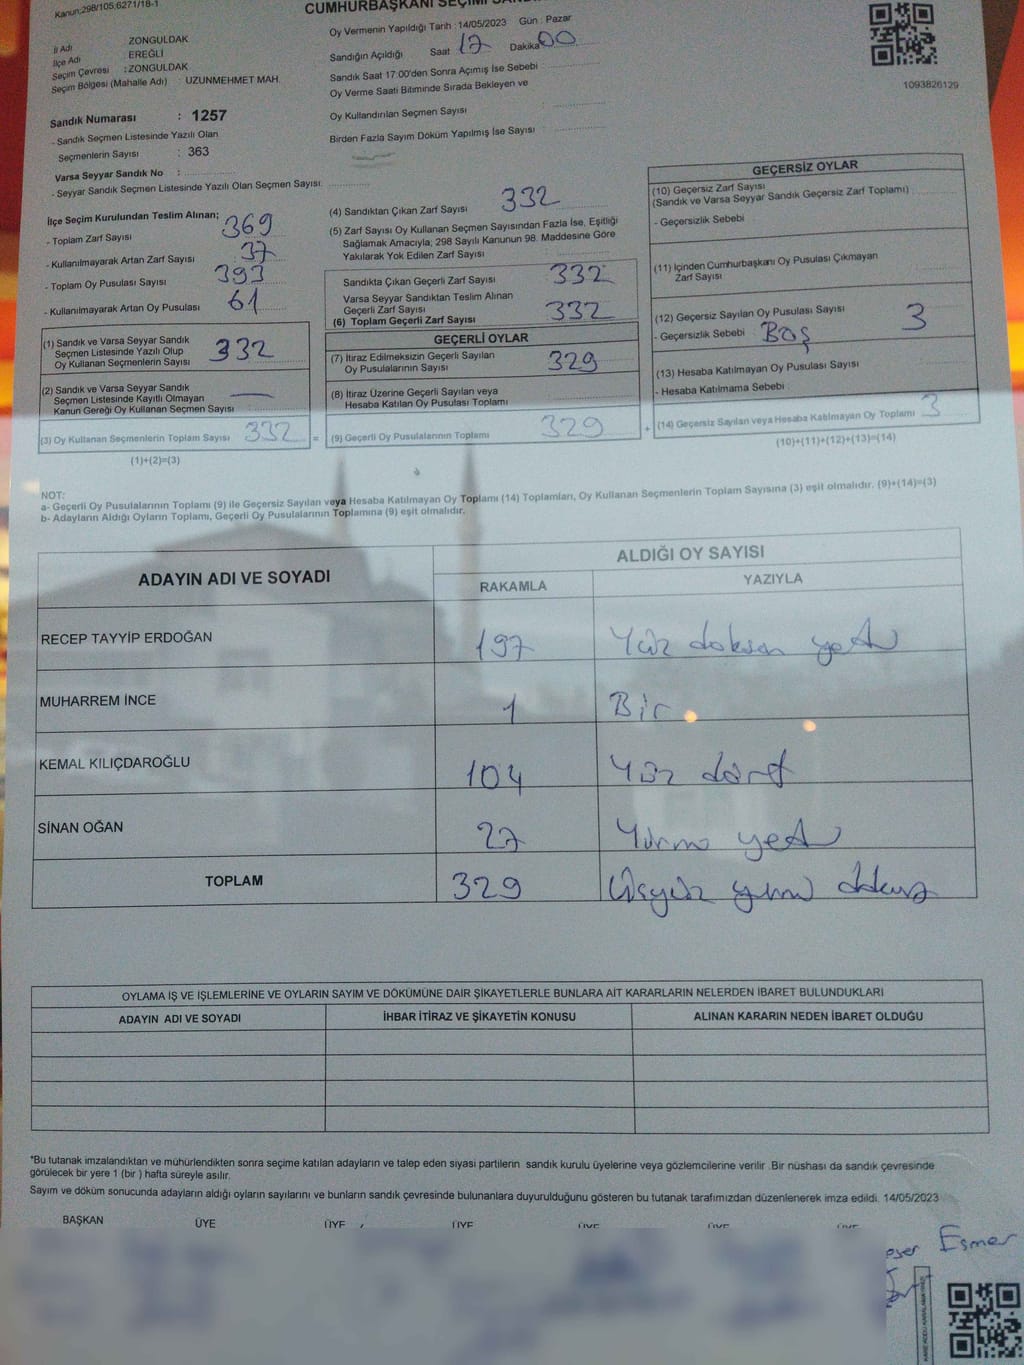 Kanun:298/105,6271/18-1
CUMHURBAŞKANI SEÇİMİ
İl Adı ZONGULDAK
İlçe Adı : EREĞLİ
Seçim Çevresi : ZONGULDAK
Seçim Bölgesi (Mahalle Adı) : UZUNMEHMET MAH.
Sandık Numarası : 1257
- Sandık Seçmen Listesinde Yazılı Olan
Seçmenlerin Sayısı : 363
Varsa Seyyar Sandık No :
- Seyyar Sandık Seçmen Listesinde Yazılı Olan Seçmen Sayısı:
Oy Vermenin Yapıldığı Tarih : 14/05/2023 Gün : Pazar
Sandığın Açıldığı Saat 17 Dakika 00
Sandık Saat 17:00'den Sonra Açımış İse Sebebi :
Oy Verme Saati Bitiminde Sırada Bekleyen ve
Oy Kullandırılan Seçmen Sayısı :
Birden Fazla Sayım Döküm Yapılmış İse Sayısı :
1093826129
İlçe Seçim Kurulundan Teslim Alınan;
- Toplam Zarf Sayısı 369
- Kullanılmayarak Artan Zarf Sayısı : 37
- Toplam Oy Pusulası Sayısı 393
- Kullanılmayarak Artan Oy Pusulası 61
(1) Sandık ve Varsa Seyyar Sandık
Seçmen Listesinde Yazılı Olup
Oy Kullanan Seçmenlerin Sayısı 332
(2) Sandık ve Varsa Seyyar Sandık
Seçmen Listesinde Kayıtlı Olmayan
Kanun Gereği Oy Kullanan Seçmen Sayısı :
(3) Oy Kullanan Seçmenlerin Toplam Sayısı 332 =
(1)+(2)=(3)
(4) Sandıktan Çıkan Zarf Sayısı 332
(5) Zarf Sayısı Oy Kullanan Seçmen Sayısından Fazla İse, Eşitliği
Sağlamak Amacıyla; 298 Sayılı Kanunun 98. Maddesine Göre
Yakılarak Yok Edilen Zarf Sayısı :
Sandıkta Çıkan Geçerli Zarf Sayısı 332
Varsa Seyyar Sandıktan Teslim Alınan
Geçerli Zarf Sayısı
(6) Toplam Geçerli Zarf Sayısı 332
GEÇERLİ OYLAR
(7) İtiraz Edilmeksizin Geçerli Sayılan
Oy Pusulalarının Sayısı 329
(8) İtiraz Üzerine Geçerli Sayılan veya
Hesaba Katılan Oy Pusulası Toplamı :
(9) Geçerli Oy Pusulalarının Toplamı 329 +
GEÇERSİZ OYLAR
(10) Geçersiz Zarf Sayısı
(Sandık ve Varsa Seyyar Sandık Geçersiz Zarf Toplamı) :
- Geçersizlik Sebebi
(11) İçinden Cumhurbaşkanı Oy Pusulası Çıkmayan
Zarf Sayısı :
(12) Geçersiz Sayılan Oy Pusulası Sayısı 3
- Geçersizlik Sebebi : BOŞ
(13) Hesaba Katılmayan Oy Pusulası Sayısı :
- Hesaba Katılmama Sebebi
(14) Geçersiz Sayılan veya Hesaba Katılmayan Oy Toplamı : 3
(10)+(11)+(12)+(13)=(14)
NOT:
a- Geçerli Oy Pusulalarının Toplamı (9) ile Geçersiz Sayılan veya Hesaba Katılmayan Oy Toplamı (14) Toplamları, Oy Kullanan Seçmenlerin Toplam Sayısına (3) eşit olmalıdır. (9)+(14)=(3)
b- Adayların Aldığı Oyların Toplamı, Geçerli Oy Pusulalarının Toplamına (9) eşit olmalıdır.
ADAYIN ADI VE SOYADI ALDIĞI OY SAYISI
RAKAMLA YAZIYLA
RECEP TAYYİP ERDOĞAN 197 Yüz doksan yedi
MUHARREM İNCE 1 Bir
KEMAL KILIÇDAROĞLU 104 Yüz dört
SİNAN OĞAN 27 Yirmi yedi
TOPLAM 329 Üçyüz yirmi dokuz
OYLAMA İŞ VE İŞLEMLERİNE VE OYLARIN SAYIM VE DÖKÜMÜNE DAİR ŞİKAYETLERLE BUNLARA AİT KARARLARIN NELERDEN İBARET BULUNDUKLARI
ADAYIN ADI VE SOYADI İHBAR İTİRAZ VE ŞİKAYETİN KONUSU ALINAN KARARIN NEDEN İBARET OLDUĞU
*Bu tutanak imzalandıktan ve mühürlendikten sonra seçime katılan adayların ve talep eden siyasi partilerin sandık kurulu üyelerine veya gözlemcilerine verilir .Bir nüshası da sandık çevresinde
görülecek bir yere 1 (bir ) hafta süreyle asılır.
Sayım ve döküm sonucunda adayların aldığı oyların sayılarını ve bunların sandık çevresinde bulunanlara duyurulduğunu gösteren bu tutanak tarafımızdan düzenlenerek imza edildi. 14/05/2023
BAŞKAN ÜYE ÜYE ÜYE ÜYE ÜYE ÜYE
Esmer